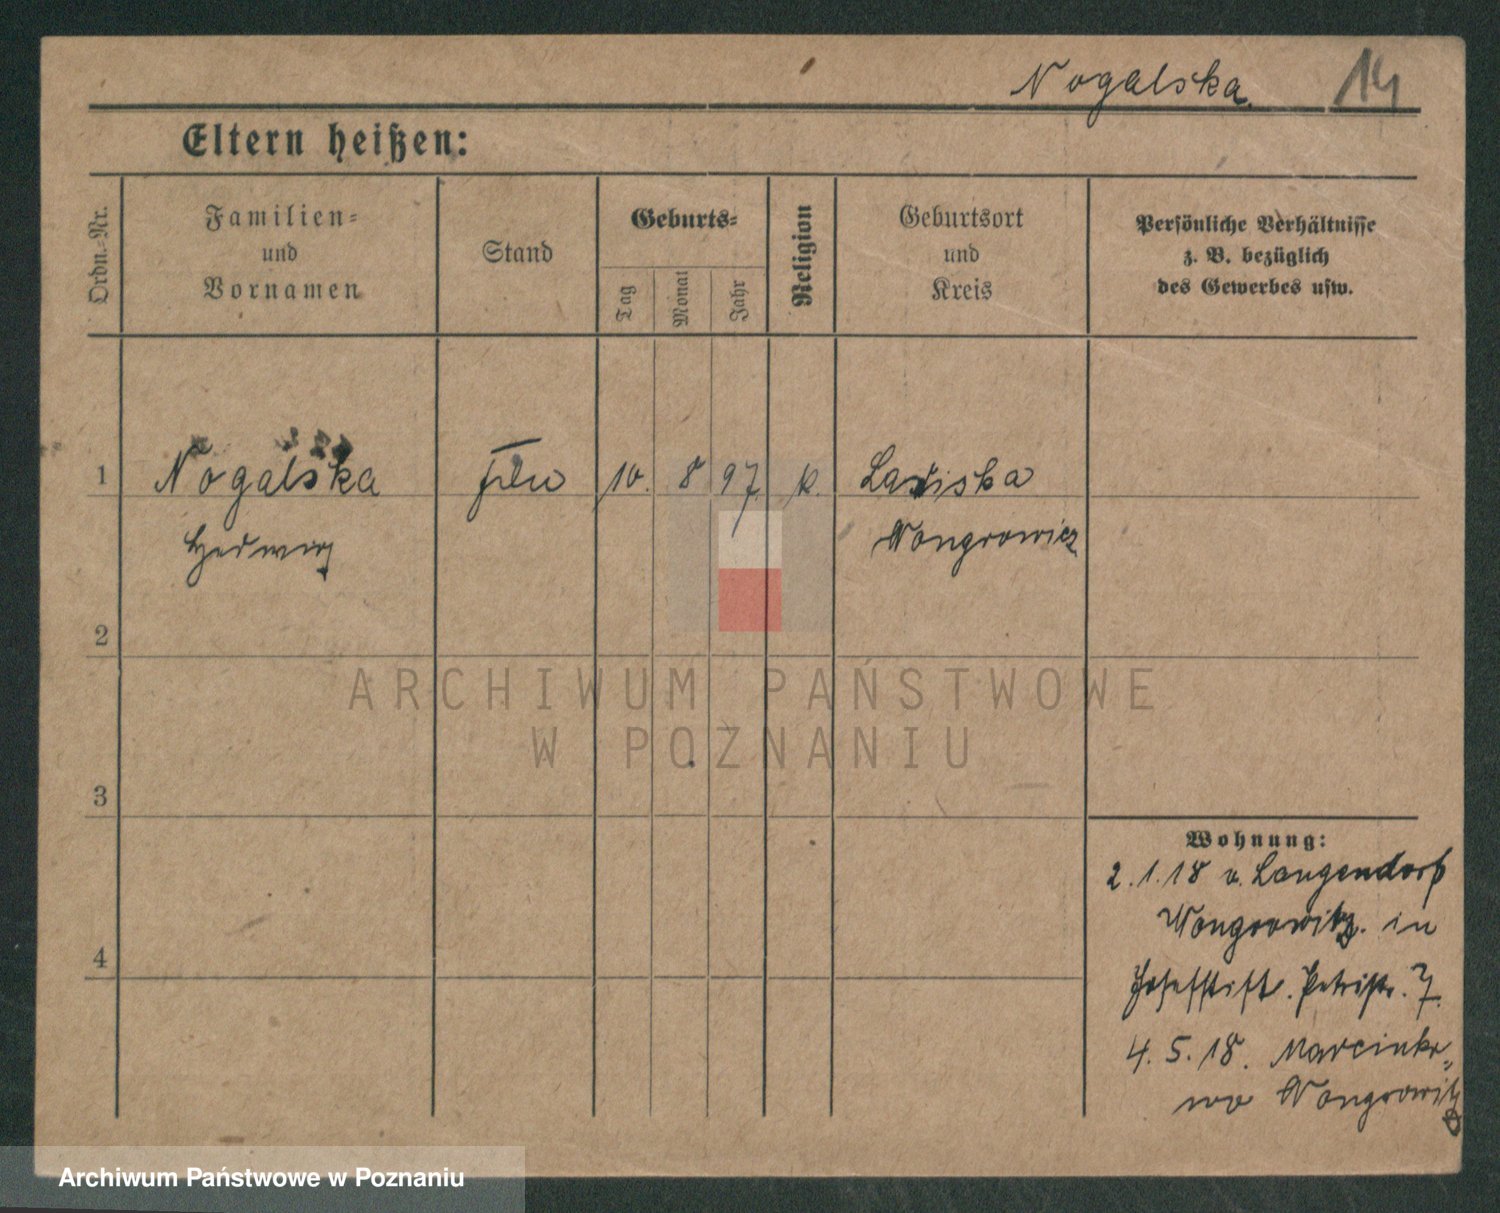 Nogalska. 14
Eltern heißen:
Ordn.-Nr.
Familien-
und
Vornamen
Stand
Geburts-
Tag
Monat
Jahr
Religion
Geburtsort
und
Kreis
Persönliche Verhältnisse
z. B. bezüglich
des Gewerbes usw.
1 Nogalska 10. 8 97 k.
Hedwig Wongrowicz
2
ARCHIWUM PAŃSTWOWE
W POZNANIU
3
Wohnung:
2.1.18 v. Langendorf
Wongrowitz. in
4
Josefstift. Petristr. 7.
4.5.18. Marcinko-
wo Wongrowitz
Archiwum Państwowe w Poznaniu